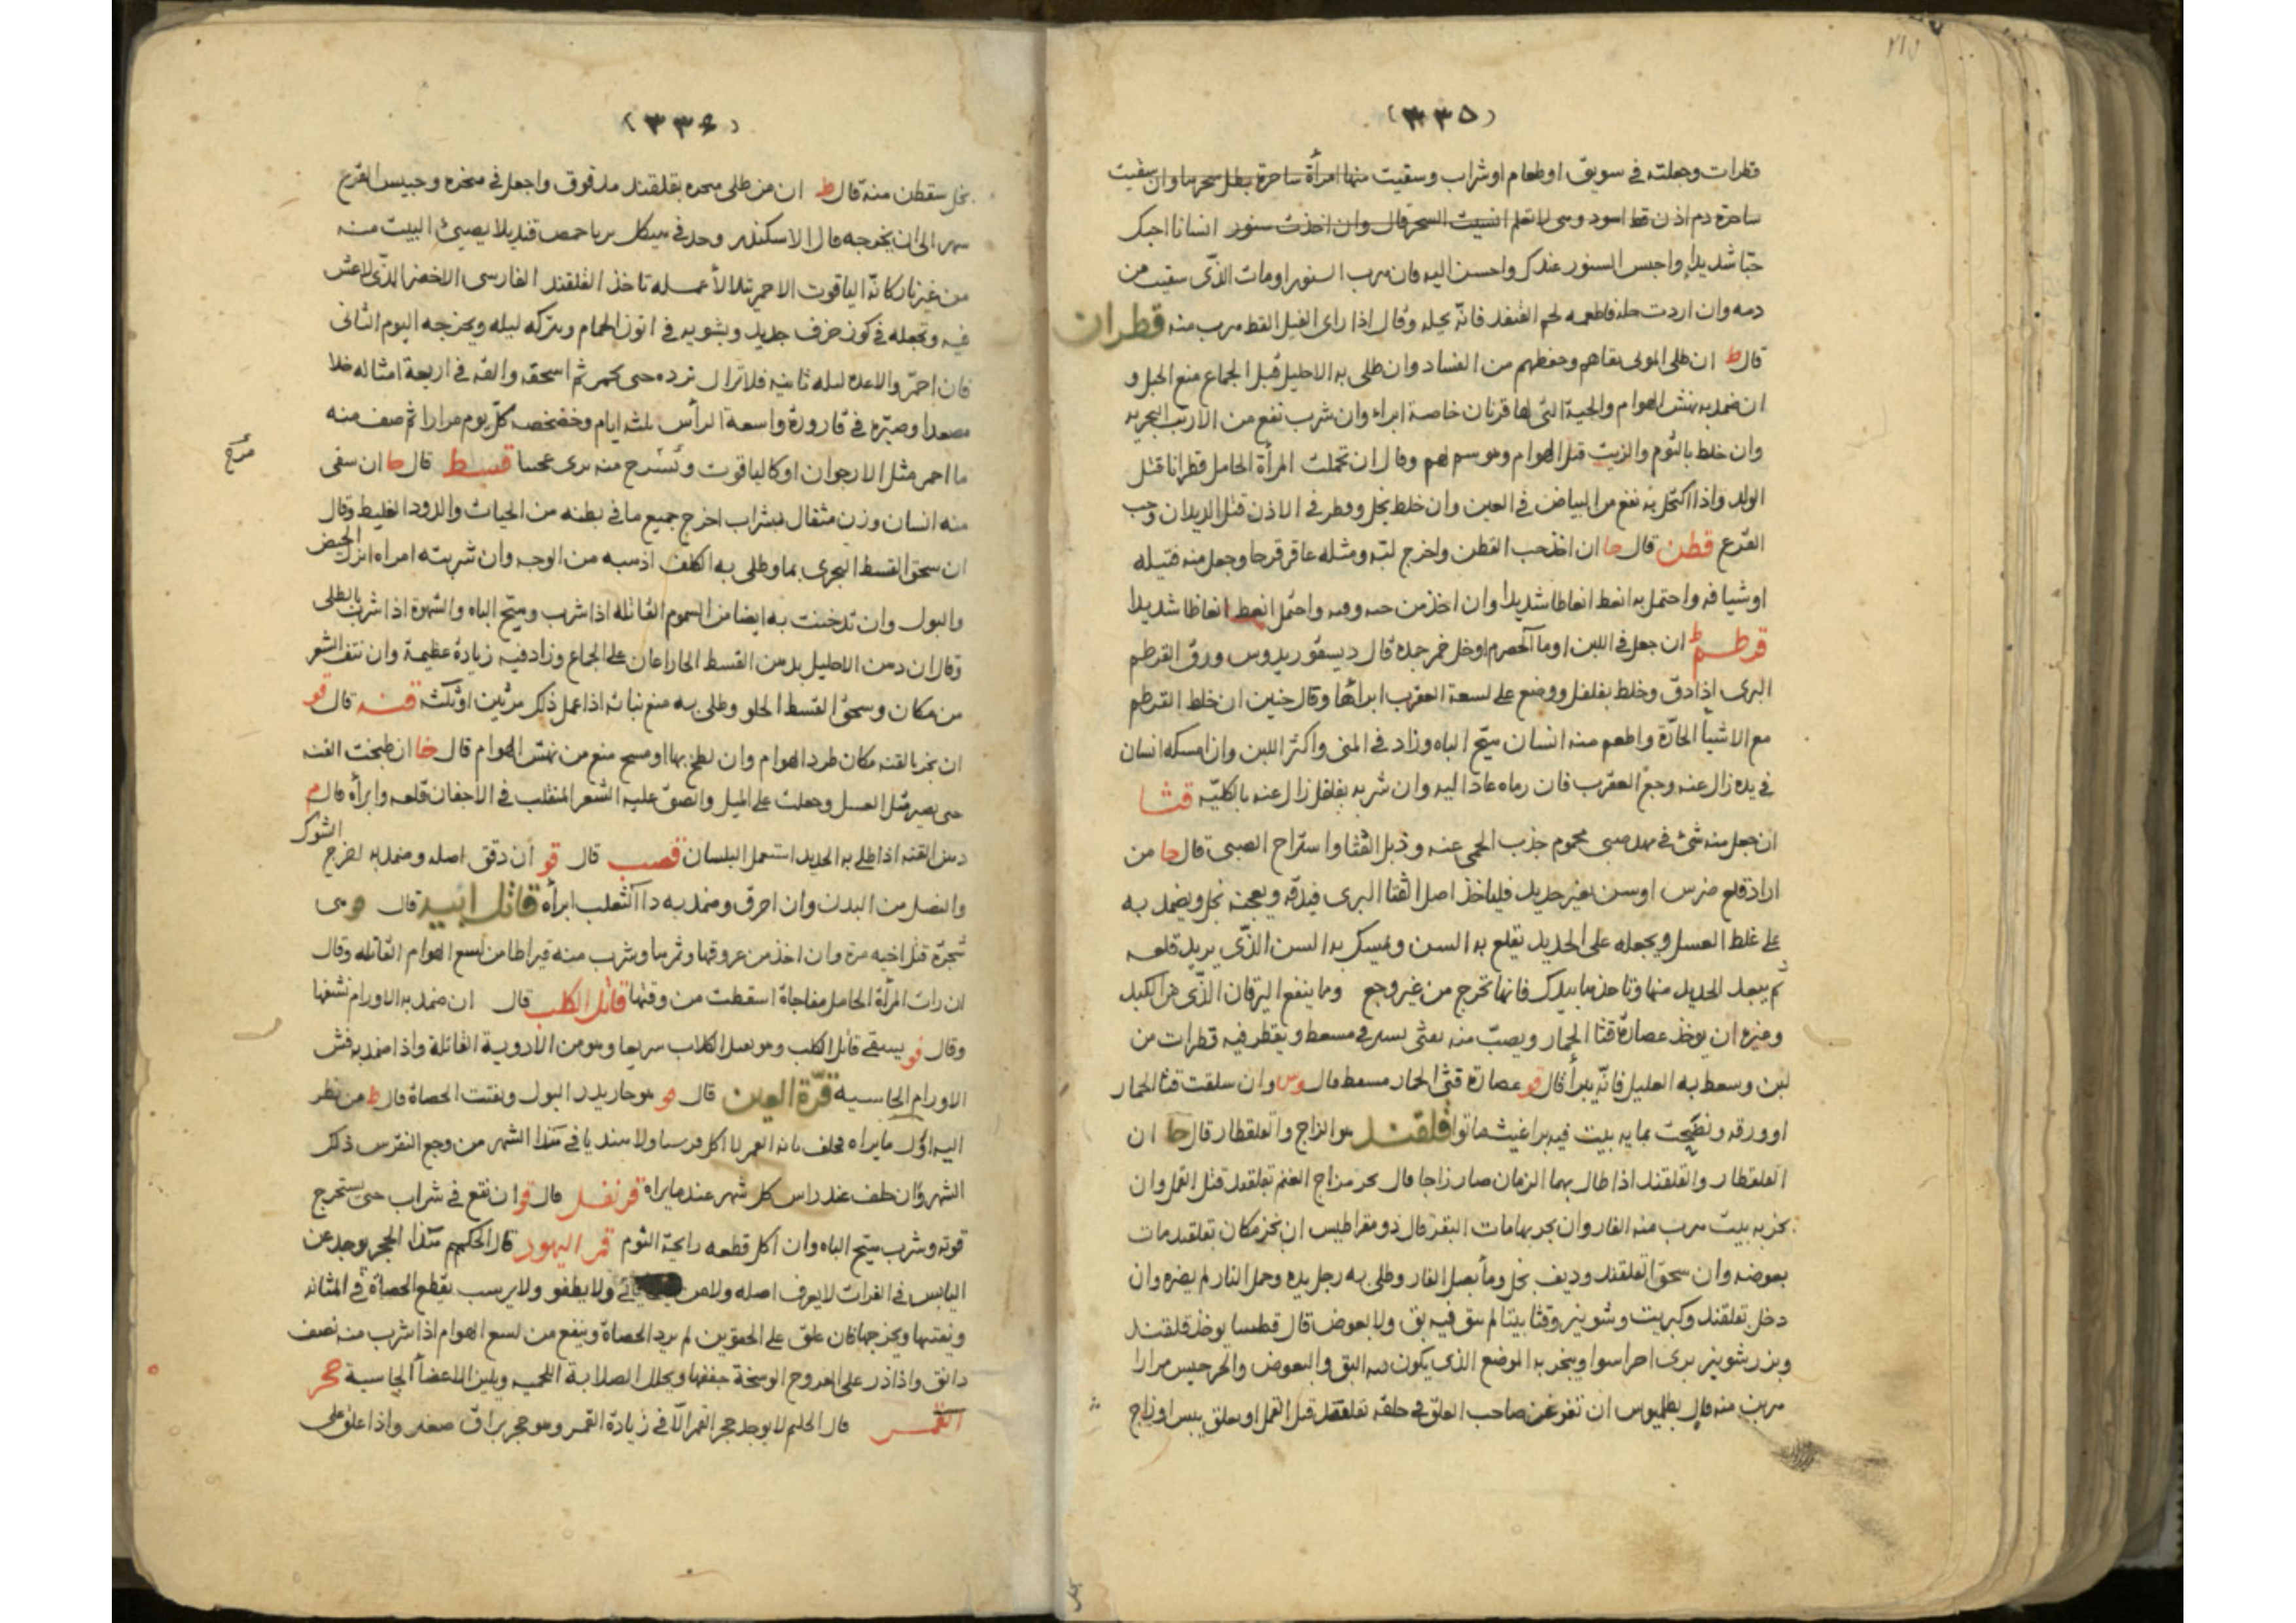 (٣٣٥)
قطرات وجعلته في سويق او طعام او شراب وسقيت منها امرأة ساحرة بطل سحرها وان سقيت
ساحرة دم اذن قط اسود وهي لا تعلم انسيت السحر قال وان اخذت سنور انسانا احبك
حبّا شديدا واحبس السنور عندك واحسن اليه فان هرب السنور او مات الذّى سقيت من
دمه وان اردت حله فاطعمه لحم القنفد فانّه يحله وقال اذا راى الفيل القط هرب منه قطران
قال ط ان طلى الموتى بقاهم وحفظهم من الفساد وان طلى به الاحليل قبل الجماع منع الحبل و
ان ضمد به نهش الهوام والحية التي لها قرنان خاصة ابراء وان شرب نفع من الارنب البحرية
وان خلط بالثوم والزيت قتل الهوام وهو سم لهم وقال ان تحملت المرأة الحامل قطرانا قتل
الولد واذا اكتحل به نفع من البياض في العين وان خلط بخل وقطر في الاذن قتل الديدان وحب
القرع قطن قال حا ان اخذ حب القطن واخرج لبّه ومثله عاقر قرحا وجعل منه فتيله
او شيافه واحتمل به انعظ انعاظا شديدا وان اخذ من حبه واحتمل انعظ انعاظا شديدا
قرطم ط ان جعل في اللبن او ماء الحصرم او خل خمر جمده قال ديسقوريدوس ورق القرطم
البرى اذا دق وخلط بفلفل ووضع على لسعة العقرب ابرأها وقال حنين ان خلط القرطم
مع الاشيأ الحارّة واطعم منه انسان هيّج الباه وزاد في المنى واكثر اللبن وان امسكه انسان
في يده زال عنه وجع العقرب فان رماه عاد اليه وان شربه بفلفل زال عنه بالكليّة قثا
ان جعل منه شئ في مهد صبى محموم جذب الحمى عنه وذبل القثا واستراح الصبى قال حا من
اراد قلع ضرس او سن بغير حديد فلياخذ اصل القثا البرى فيدقه ويعجنه بخل ويضمد به
على غلظ العسل ويجعله على الحديد يقلع به السن ويمسك به السن الذّى يريد قلعه
ثم يبعد الحديد منها وتاخذها بيدك فانها تخرج من غير وجع ومما ينفع اليرقان الذّى من الكبد
وغيره ان يوخذ عصارة قثا الحمار ويصبّ منه شئ يسير في مسعط ويقطر فيه قطرات من
لبن وسعط به العليل فانّه يبرأ قال قو عصارة قثى الحمار مسعط قال وس وان سلقت قثا الحمار
او ورقه ونضحت بمايه بيت فيه براغيث ماتوا قلقند هو الزاج والقلقطار قال حا ان
القلقطار والقلقند اذا طال بهما الزمان صار زاجا قال بحر من زاج الغنم بقلقند قتل القمل وان
بخر به بيت هرب منه الفار وان بخر بهامات البقر قال ذومقراطيس ان بخر مكان بقلقند مات
بعوضه وان سحق القلقند وديف بخل وماء بصل الفار وطلى به رجل يده وحمل النار لم يضره وان
دخل بقلقند وكبريت وشونيز وقثا بيتا لم يبق فيه بق ولا بعوض قال قطسا يوخذ قلقند
وبزر شونيز برى اجراء سوا ويبخر به الموضع الذى يكون فيه البق والبعوض والجرجيس مرارا
هربن منه قال بطليوس ان تغرغر صاحب العلق في حلقه بقلقند قتل القمل او معلق يبس او زاج
بخل
(٣٣٦)
بخل سقطن منه قال ط ان من طلى منخره بقلقند مدقوق واجعل في منخره وحبيس القرع
شهر الى ان يخرجه قال الاسكندر وجد في هيكل برباحمص قنديلا يضيئ البيت منه
من غير نار كانّه الياقوت الاحمر يتلالأ عمله تاخذ القلقند الفارسى الاخضر الذّى لا غش
فيه وتجعله في كوز خزف جديد ويشويه في اتون الحمام ويتركه ليله ويخرجه اليوم الثانى
فان احمرّ والا اعده ليله ثانيه فلا تزال ترده حتى يحمر ثم اسحقه والقه في اربعة امثاله خلا
مصعدا وصيّره في قارورة واسعة الرأس ثلثه ايام وخضخضه كلّ يوم مرارا ثم صف منه
ما احمر مثل الارجوان او كالياقوت وتسرج منه ترى عجبا قسط قال حا ان سقى
مزج
منه انسان وزن مثقال بشراب اخرج جميع ما في بطنه من الحيات والدود الغليظ وقال
ان سحق القسط البحرى بماء وطلى به الكلف اذهبه من الوجه وان شربته امراه انزل الحيض
والبول وان تدخنت به ايضا من السموم القاتله اذا شرب وهيّج الباه والشهوة اذا شرب بالطلى
وقال ان دهن الاحليل بدهن القسط الحار اعان على الجماع وزاد فيه زيادة عظيمة وان نتف الشعر
من مكان وسحق القسط الحلو وطلى به منع نباته اذا عمل ذلك مرّتين او ثلث قنه قال قو
ان بخر بالقنه مكان طرد الهوام وان لطخ بها او مسح منع من نهش الهوام قال خا ان طبخت القنه
حتى يصير مثل العسل وجعلت على الميل والصق عليه الشعر المنقلب في الاجفان قلعه وابرأه قال م
دهن القنه اذا طلى به الحديد استعمل البلسان قصب قال قو ان دق اصله وضمد به اخرج الشوك
والنصل من البدن وان احرق وضمد به داء الثعلب ابرأه قاتل ابيه قال و هي
شجرّة قتل اخيه مرة وان اخذ من عروقها وثمرها وشرب منه قيراطا من لسع الهوام القاتله وقال
ان رات المرأة الحامل مفاجاة اسقطت من وقتها قاتل الكلب قال ان ضمد به الاورام نشفها
وقال قو يسقى قاتل الكلب وهو يقتل الكلاب سريعا وهو من الادوية القاتلة واذا ضمد به فش
الاورام الجاسيه قرّة العين قال و هو حار يدر البول ويفتت الحصاة قال ط من نظر
اليه اوّل ما يراه فحلف بانه العمر لا اكل فرسا ولا هنديا في هذا الشهر من وجع النقرس ذلك
الشهر وان حلف عند راس كل شهر عند ما يراه قرنفل قال قو ان نقع في شراب حتى يستخرج
قوته وشرب هيّج الباه وان اكل قطعه رايحة الثوم قفر اليهود قال الحكيم هذا الحجر يوجد عن
اليابس في الفرات لا يعرف اصله ولا من ولا يطفو ولا يرسب يقطع الحصاة في المثانه
ويفتتها ويخرجها فان علق على الحقوين لم يرد الحصاة وينفع من لسع الهوام اذا شرب منه نصف
دانق واذا ذر على القروح الوسخة جففها ويحلل الصلابة اللحميه ويلين الاعضأ الجاسية حجر
القمر قال الحليم لا يوجد حجر القمر الّا في زيادة القمر وهو حجر براق صغير واذا علق على